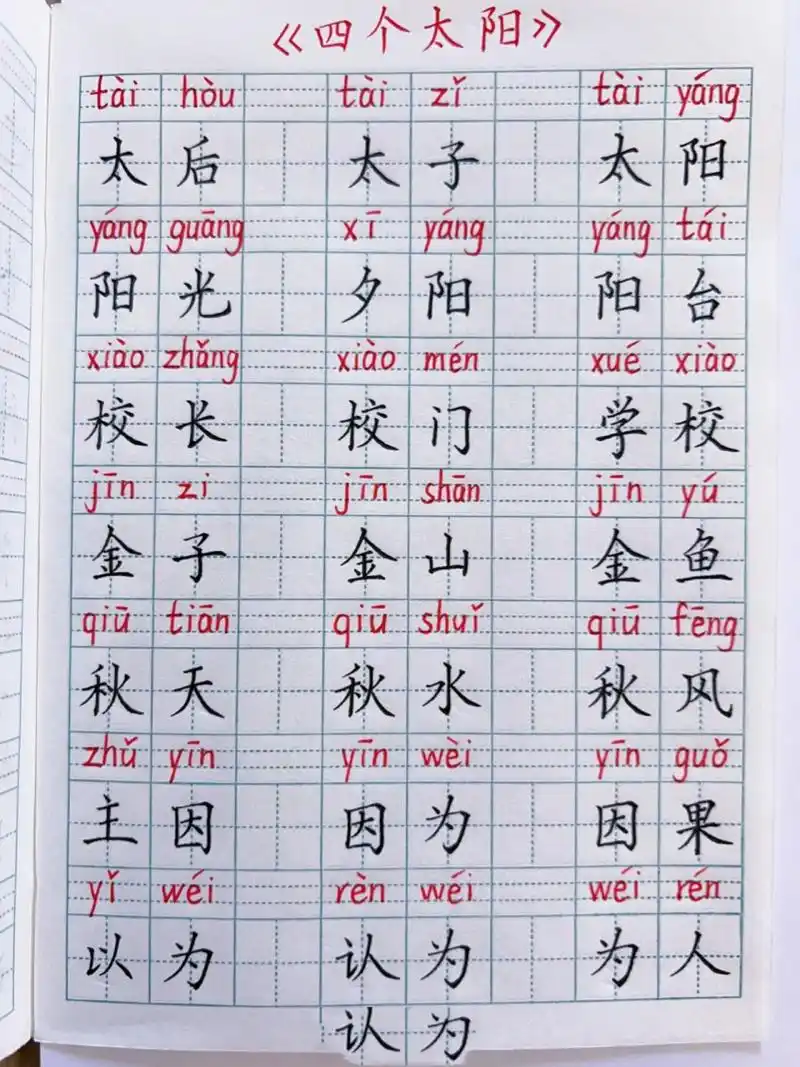 《四个太阳》
tài hòu tài zǐ tài yáng
太后 太子 太阳
yáng guāng xī yáng yáng tái
阳光 夕阳 阳台
xiào zhǎng xiào mén xué xiào
校长 校门 学校
jīn zi jīn shān jīn yú
金子 金山 金鱼
qiū tiān qiū shuǐ qiū fēng
秋天 秋水 秋风
zhǔ yīn yīn wèi yīn guǒ
主因 因为 因果
yǐ wéi rèn wéi wéi rén
以为 认为 为人
认为